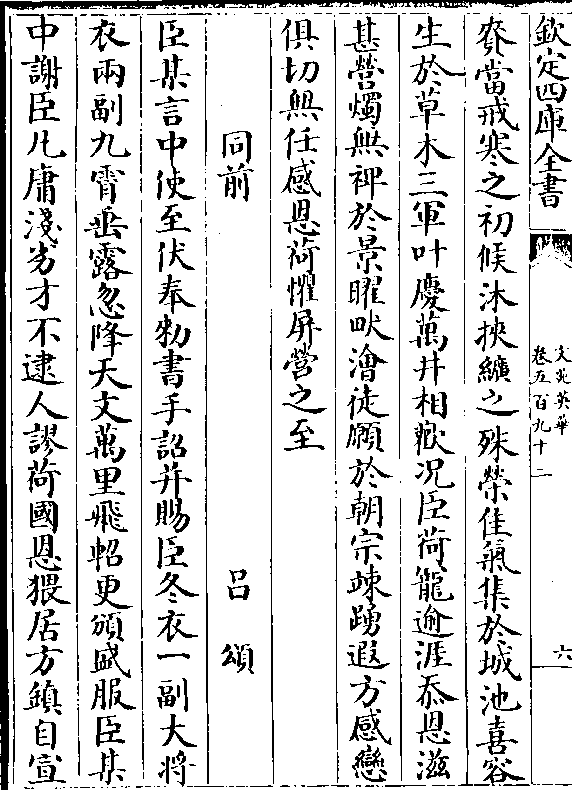 欽定四庫全書
文苑英華
卷五百九十二
六
賚當戒寒之初候沐挾纊之殊榮佳氣集於城池喜容
生於草木三軍叶慶萬井相歡况臣荷寵逾涯忝恩滋
甚營燭無裨於景曜畎澮徒願於朝宗竦踴遐方感戀
俱切無任感恩荷懼屏營之至
同前
吕頌
臣某言中使至伏奉勑書手詔并賜臣冬衣一副大將
衣兩副九霄垂露忽降天文萬里飛軺更頒盛服臣某
中謝臣凡庸淺劣才不逮人謬荷國恩猥居方鎮自宣